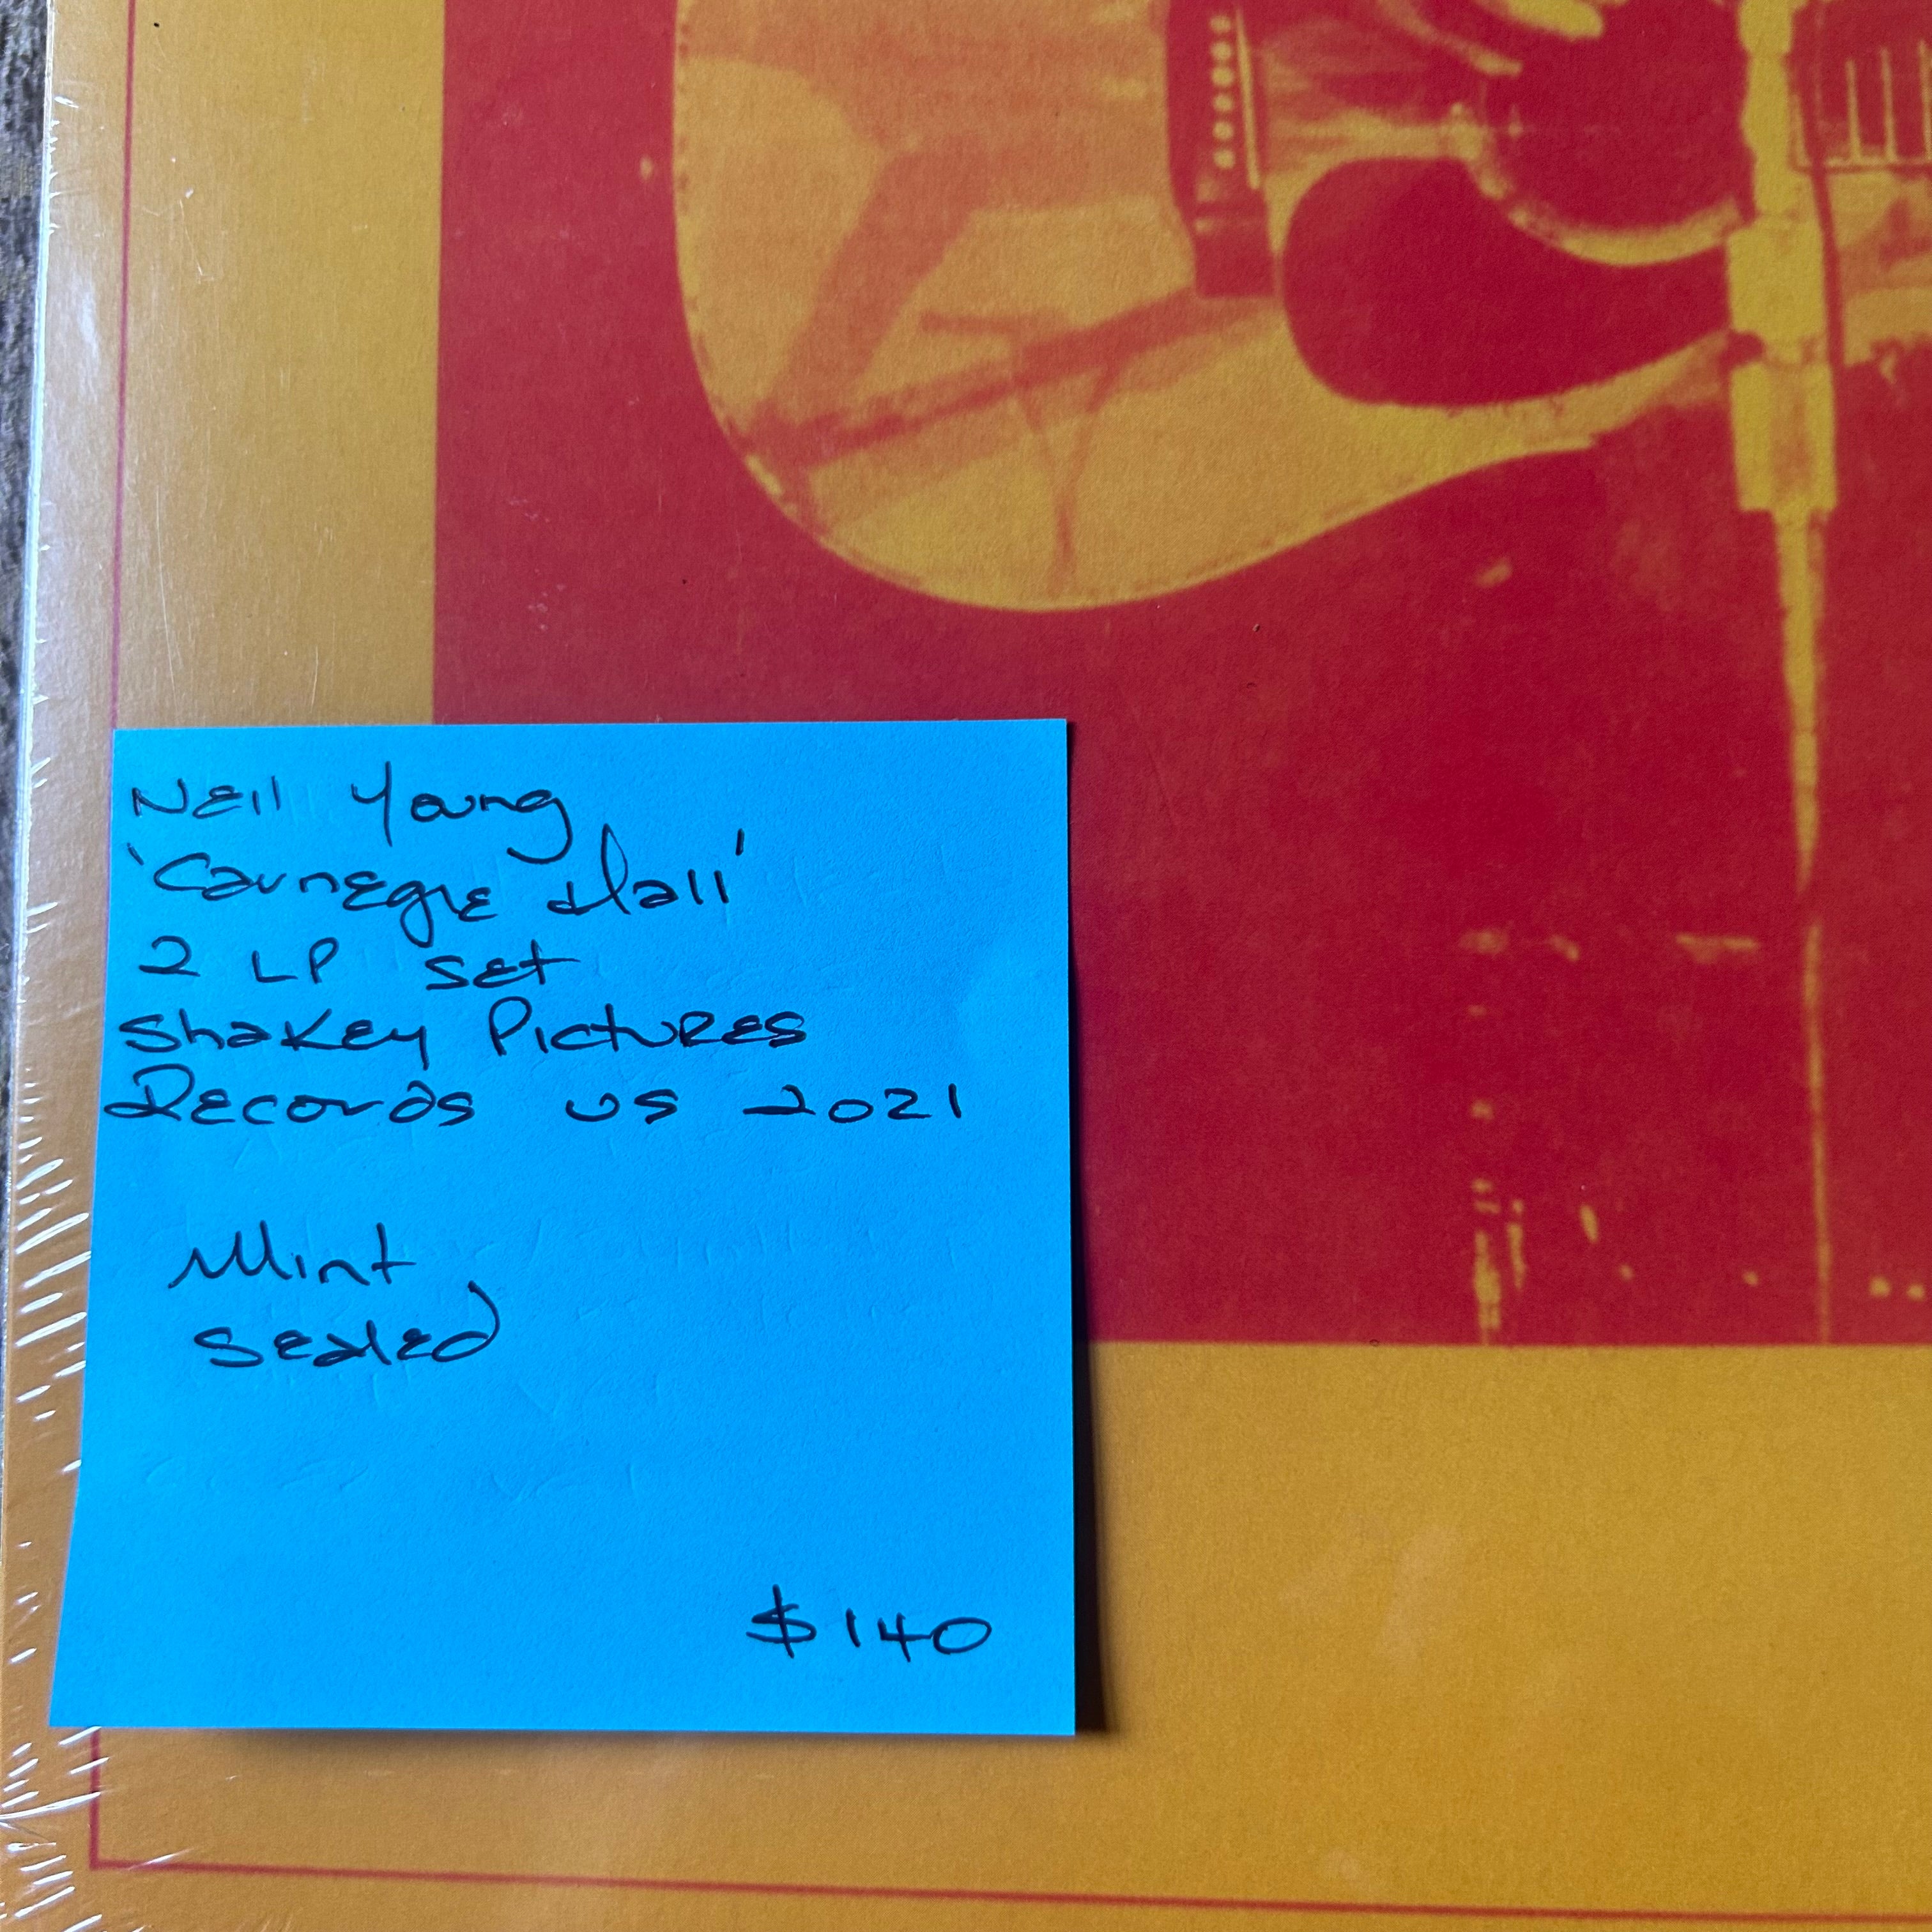 Neil Young
'Carnegie Hall'
2 LP set
Shakey Pictures
Records US 2021
Mint
Sealed
$140